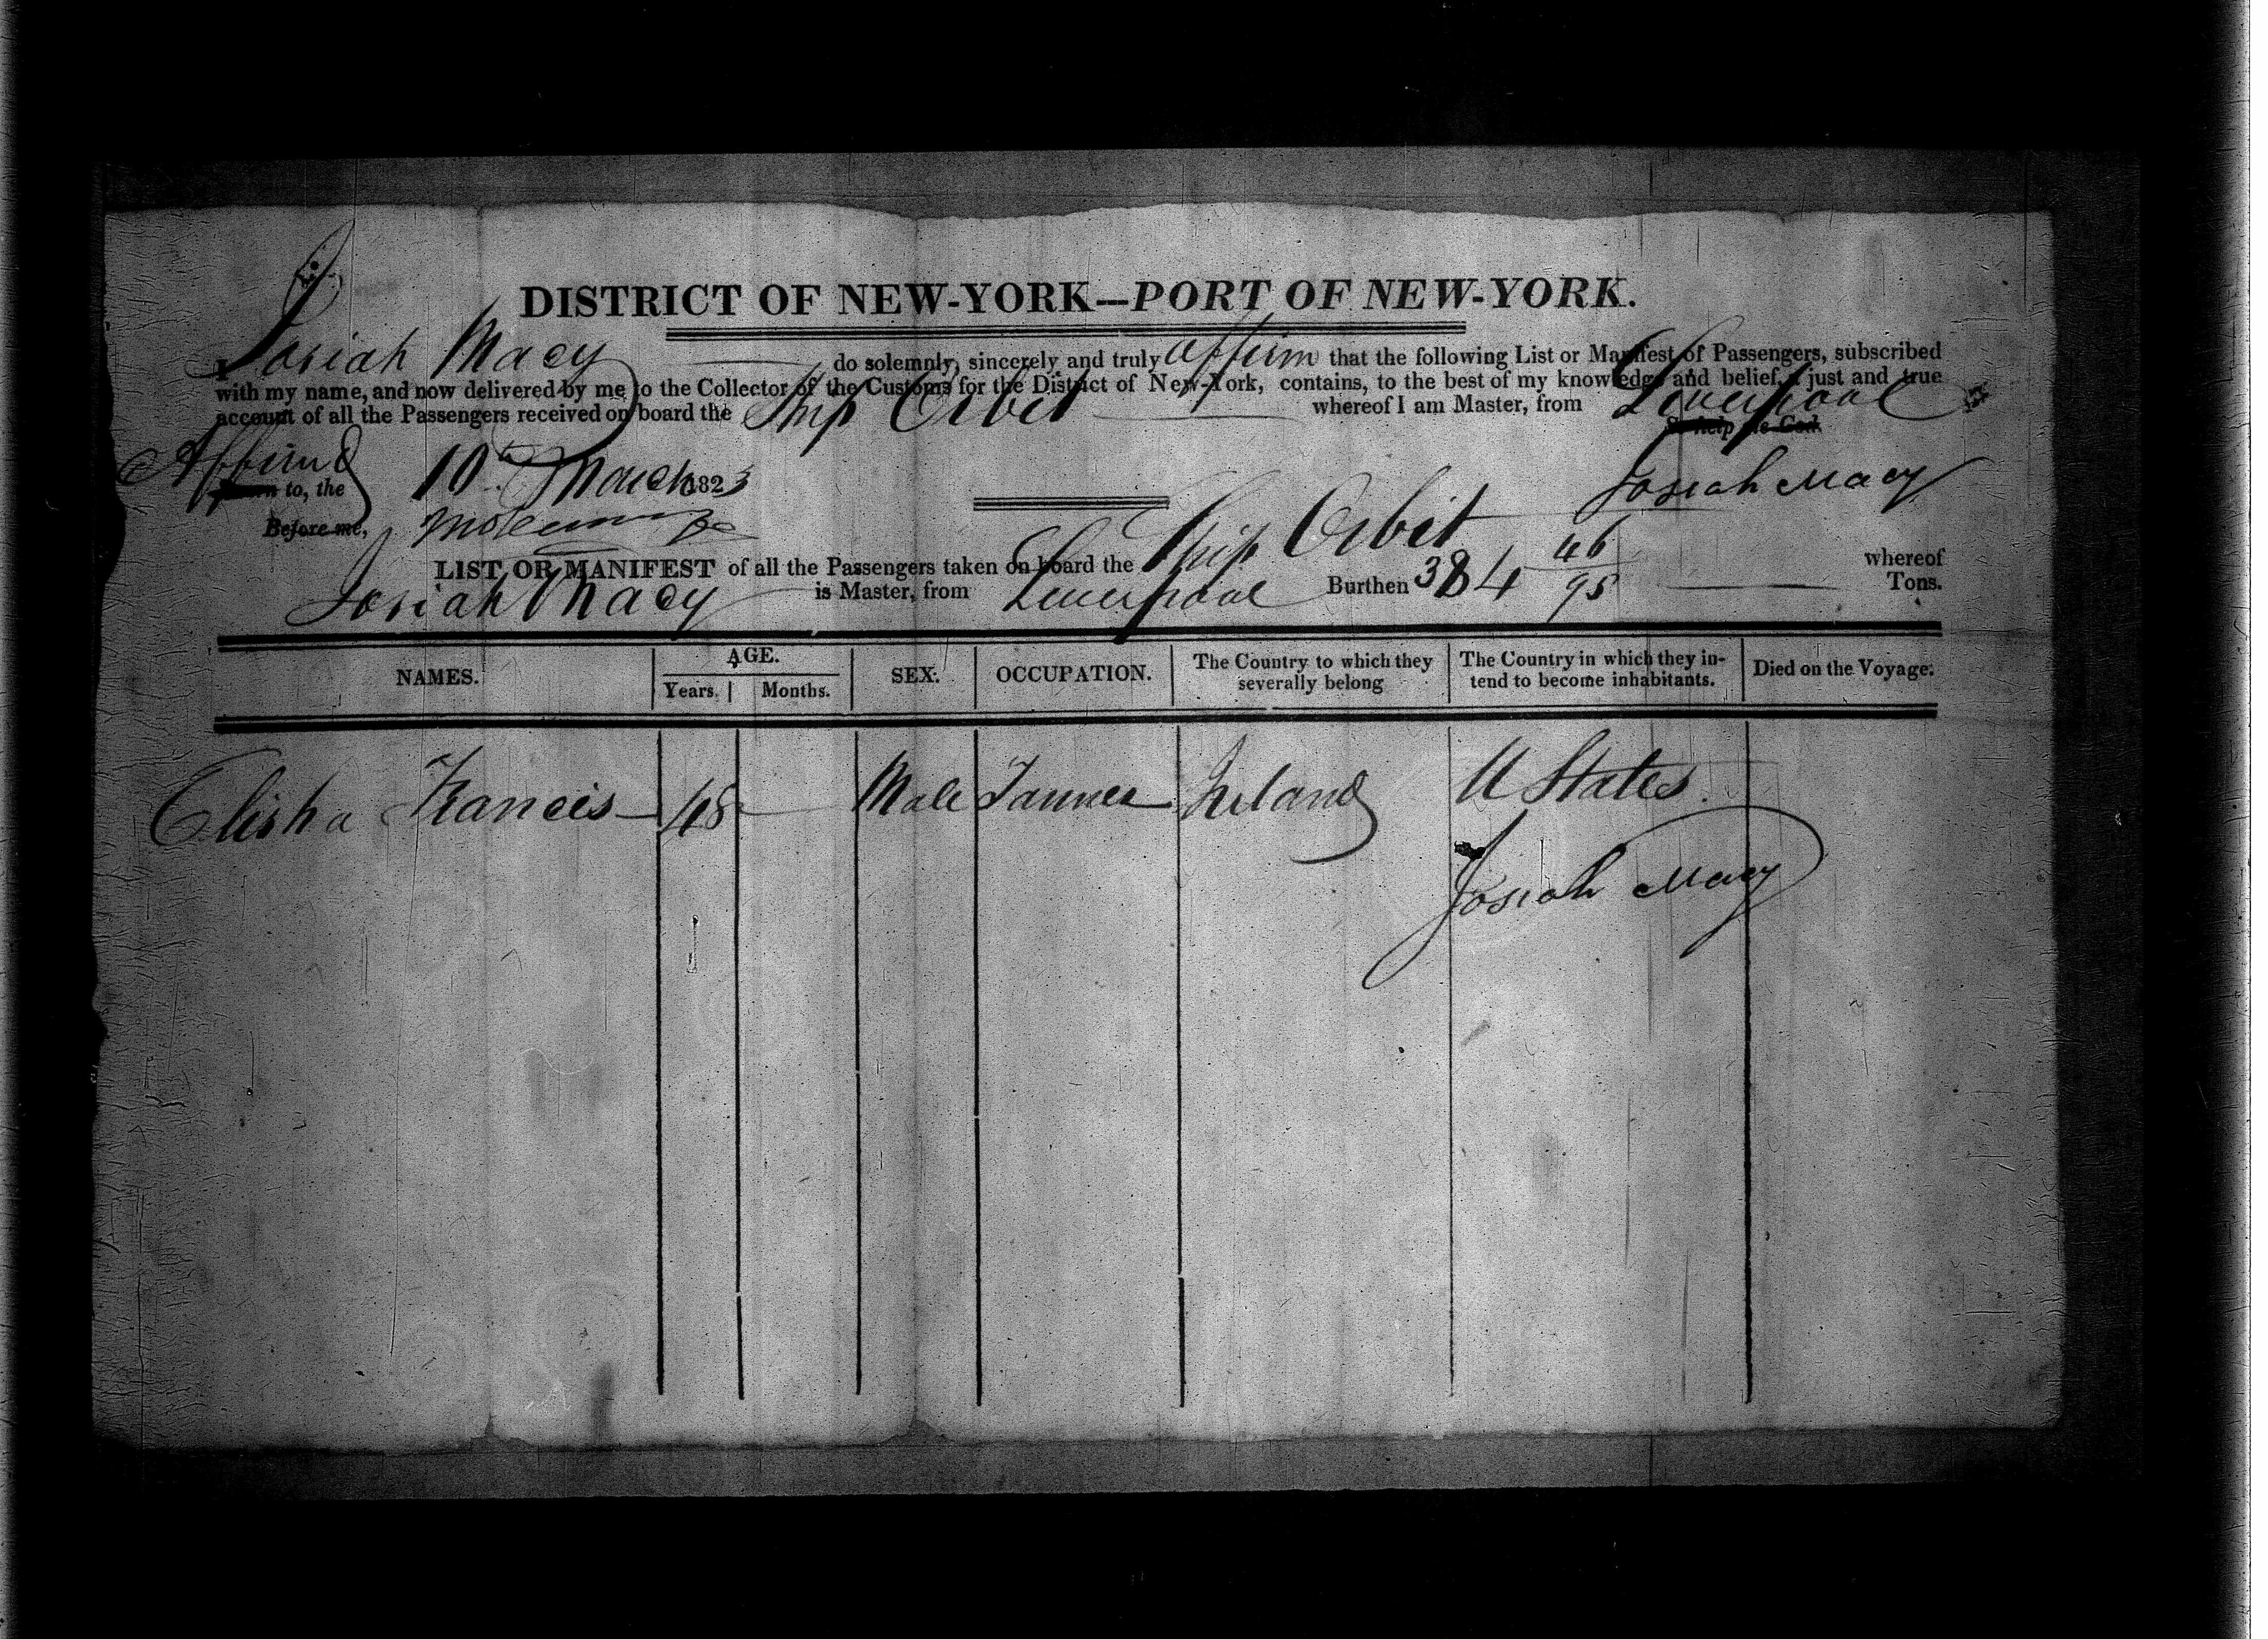 DISTRICT OF NEW-YORK—PORT OF NEW-YORK.
I Josiah Macy do solemnly, sincerely and truly affirm that the following List or Manifest of Passengers, subscribed
with my name, and now delivered by me to the Collector of the Customs for the District of New-York, contains, to the best of my knowledge and belief, a just and true
account of all the Passengers received on board the Ship Orbit whereof I am Master, from Liverpool
So help me God.
Affirmd to, the 10th March 1823
Josiah Macy
Before me,
LIST OR MANIFEST of all the Passengers taken on board the Ship Orbit whereof
Josiah Macy is Master, from Liverpool Burthen 384 46/95 Tons.
NAMES. AGE. SEX. OCCUPATION. The Country to which they severally belong The Country in which they intend to become inhabitants. Died on the Voyage.
Years. Months.
Elisha Francis 48 Male Tanner Ireland U States
Josiah Macy